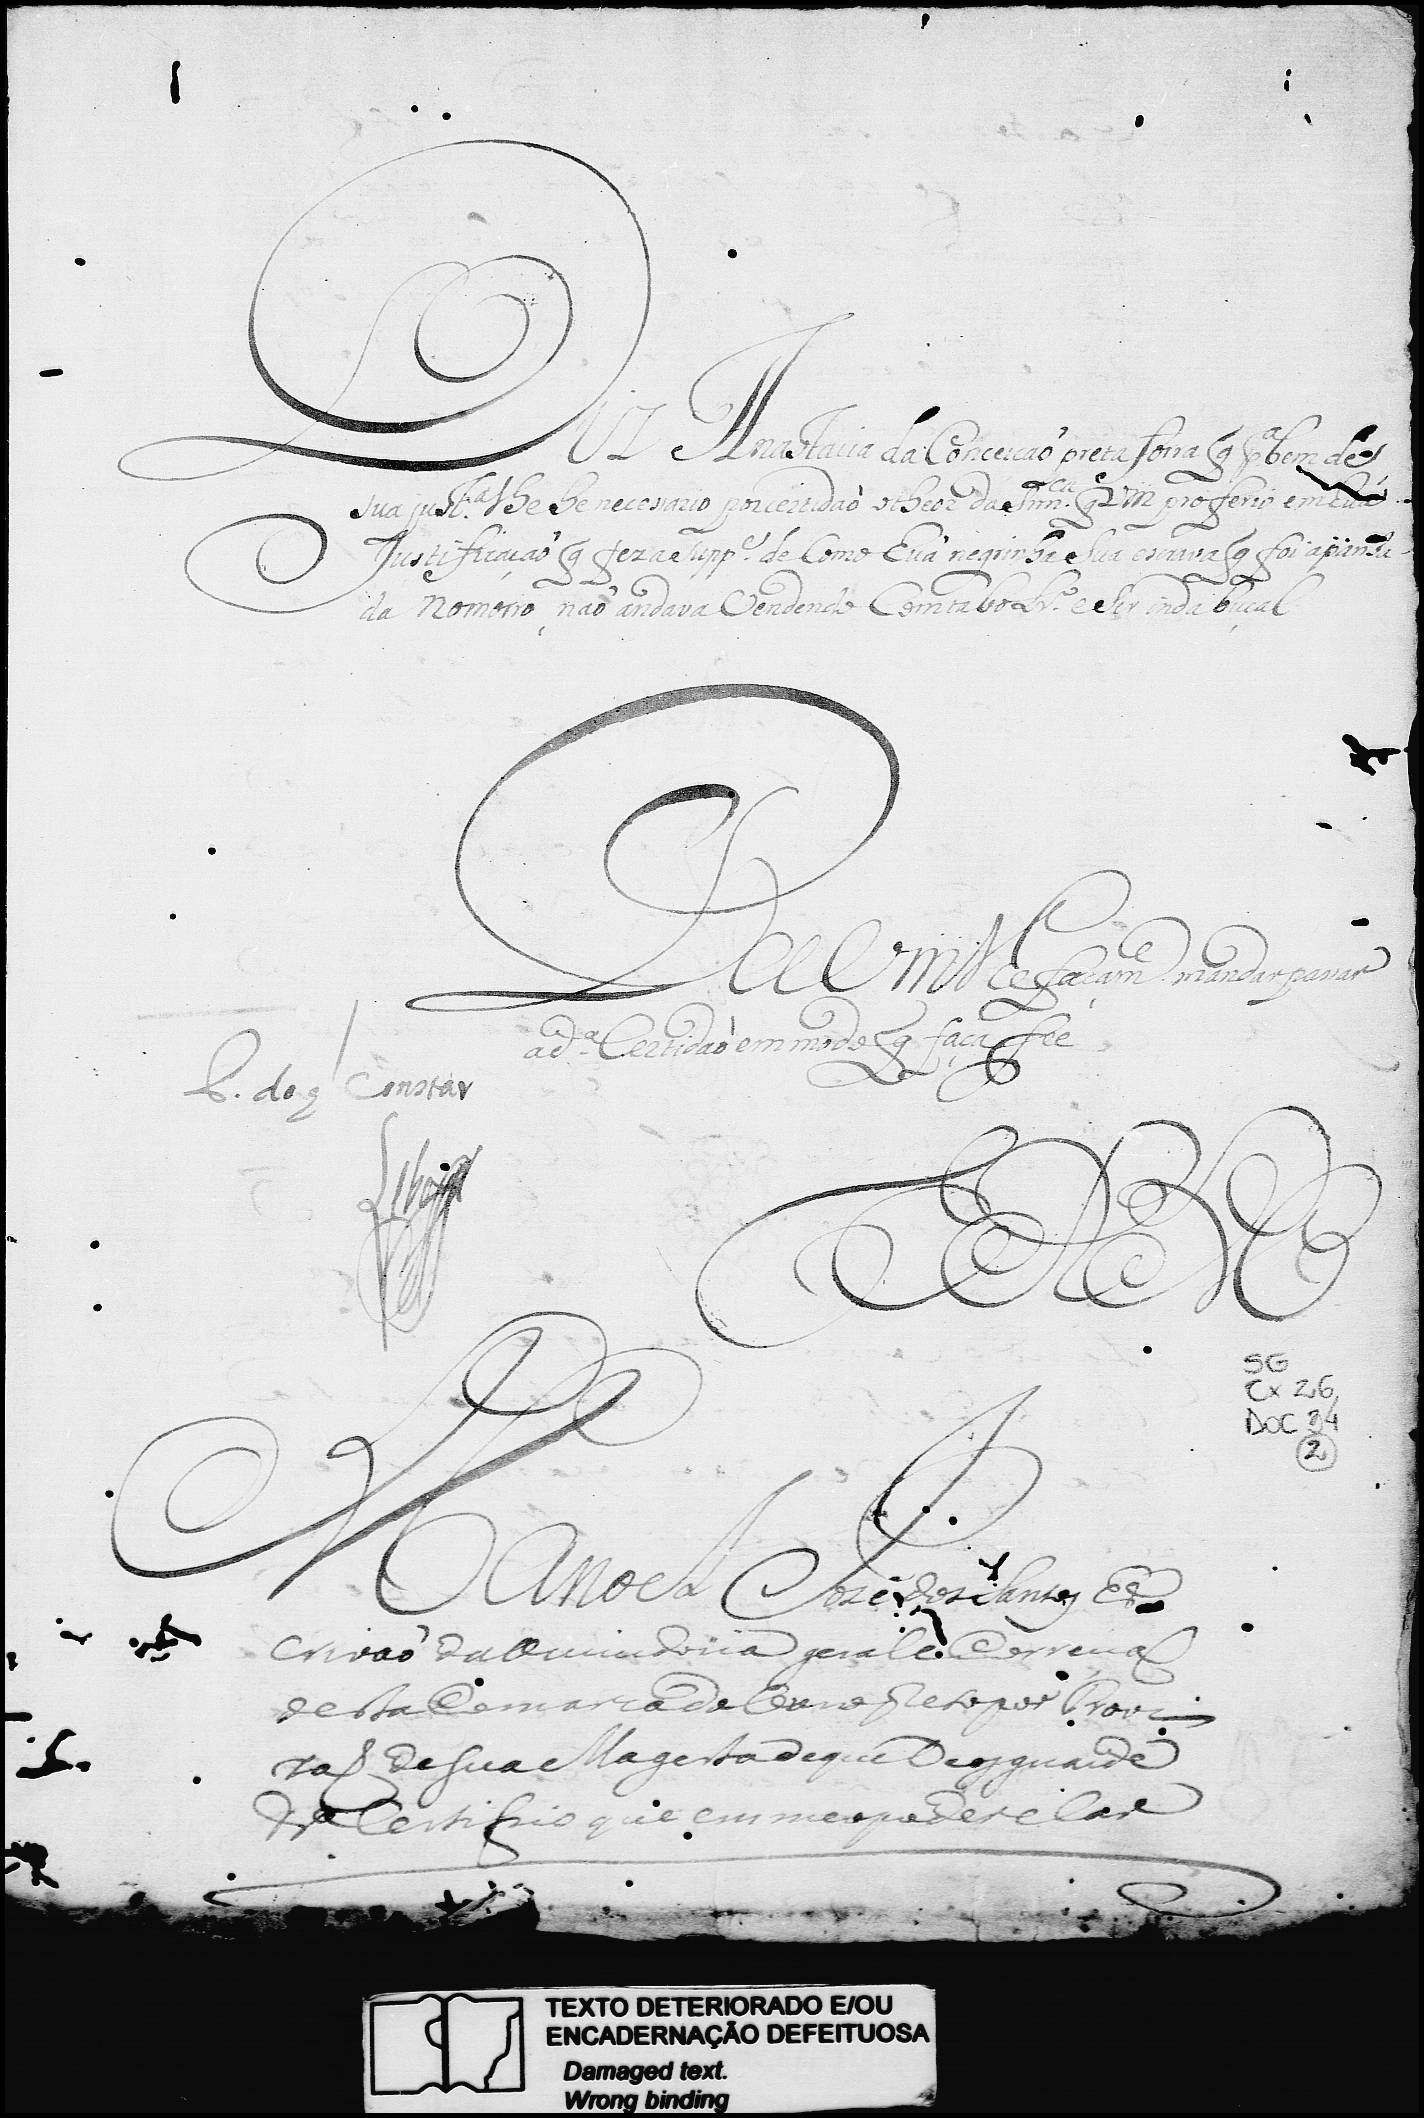 Diz Anastacia da Conceicaõ preta forra q̃ p.ª bem de
sua just.ª lhe he necessario por certidaõ o theor da Snn.ca q̃ Vm.ce proferio em hua
Justificaçaõ q̃ fez a Supp.e de Como Eva negrinha Sua escrava q̃ foi apanha
da No morro, naõ andava Vendendo Com taboleiro e Ser inda buçal
P a Vm.ce lhe faça m.ce mandar passar
a d.ª Certidaõ em modo q̃ faça fee
P. do q̃ Constar
E R M
SG
CX 26
DOC 34
2
Manoel José dos Santos Es
crivaõ da Ouvidoria geral e Correiçaõ
desta Comarca do Ouro preto por Provi
zaõ de Sua Magestade que Deos guarde
Certifico que em meo poder e Car
TEXTO DETERIORADO E/OU
ENCADERNAÇÃO DEFEITUOSA
Damaged text.
Wrong binding